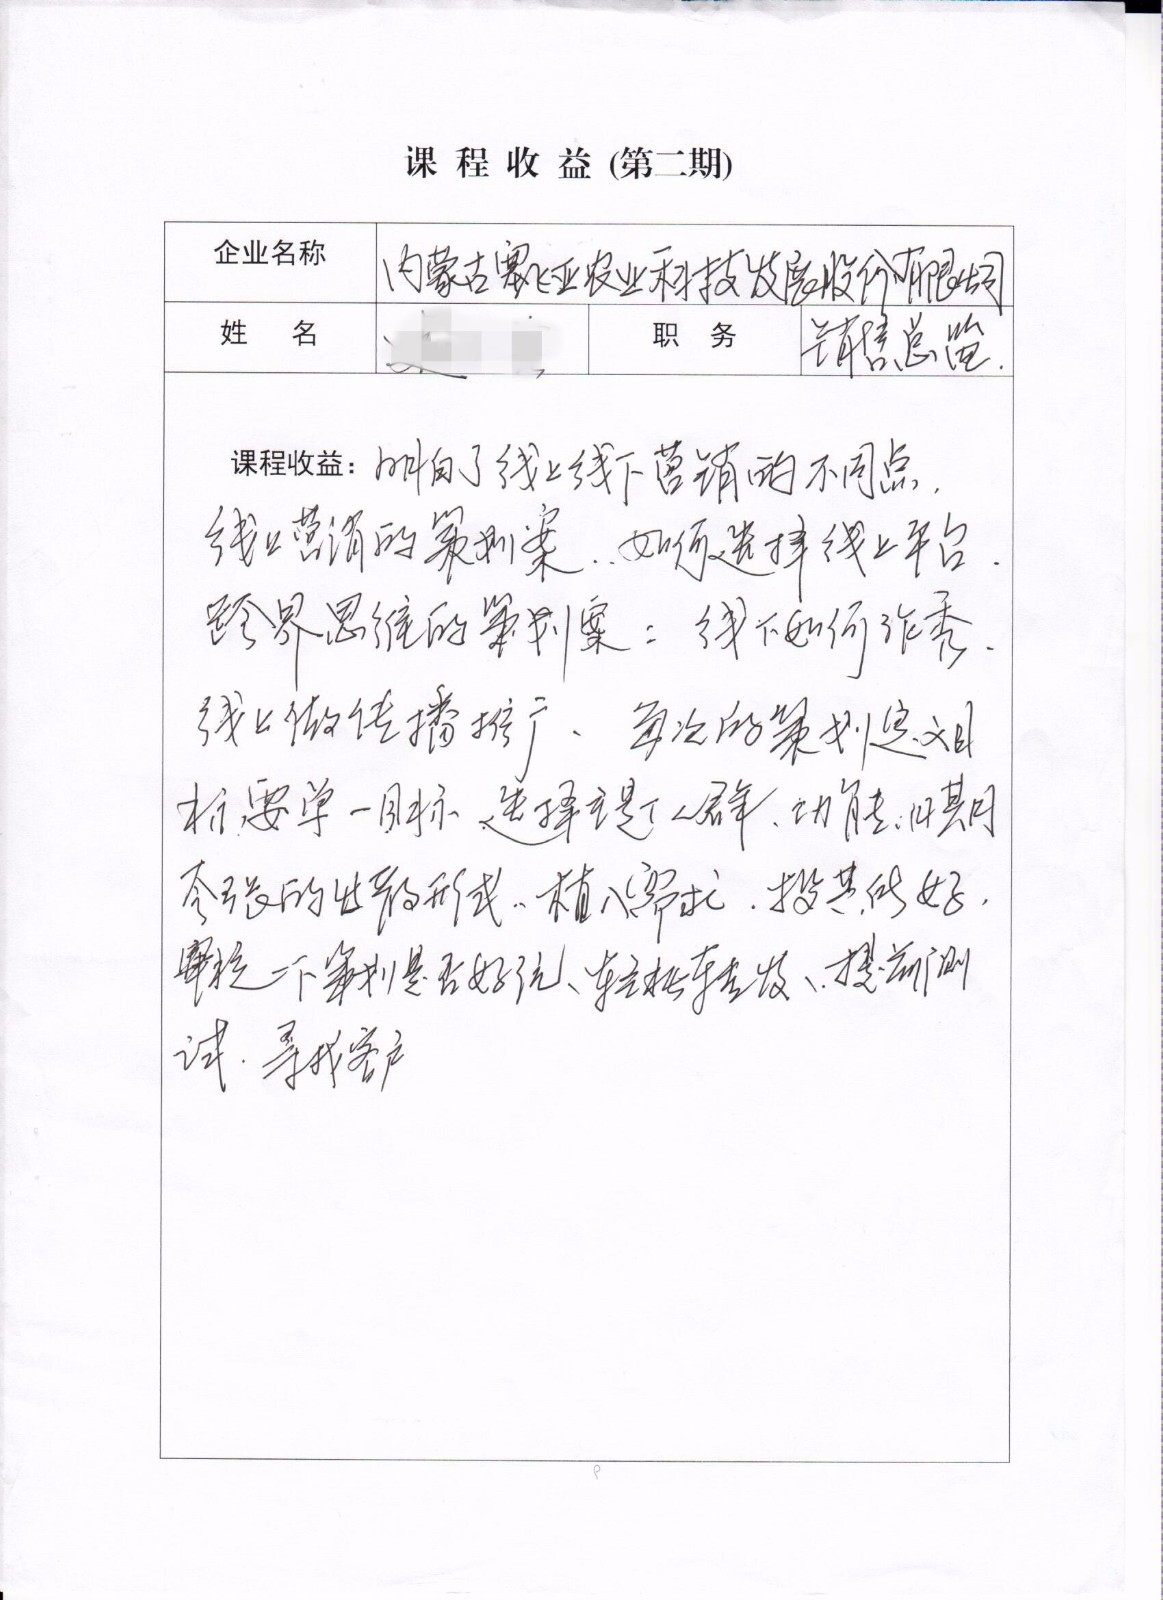 课程收益(第二期)
企业名称 内蒙古塞飞亚农业科技发展股份有限公司
姓 名 职 务 销售总监.
课程收益: 明白了线上线下营销的不同点.
线上营销的策划案..如何选择线上平台.
跨界思维的策划案:线下如何作秀.
线上做传播推广、每次的策划定义目
标,要单一目标.选择主题、人群.功能.
夸张的 形式..植入 .投其所好.
审视一下策划是否好玩、轻松转发、.提前测
试.寻找客户